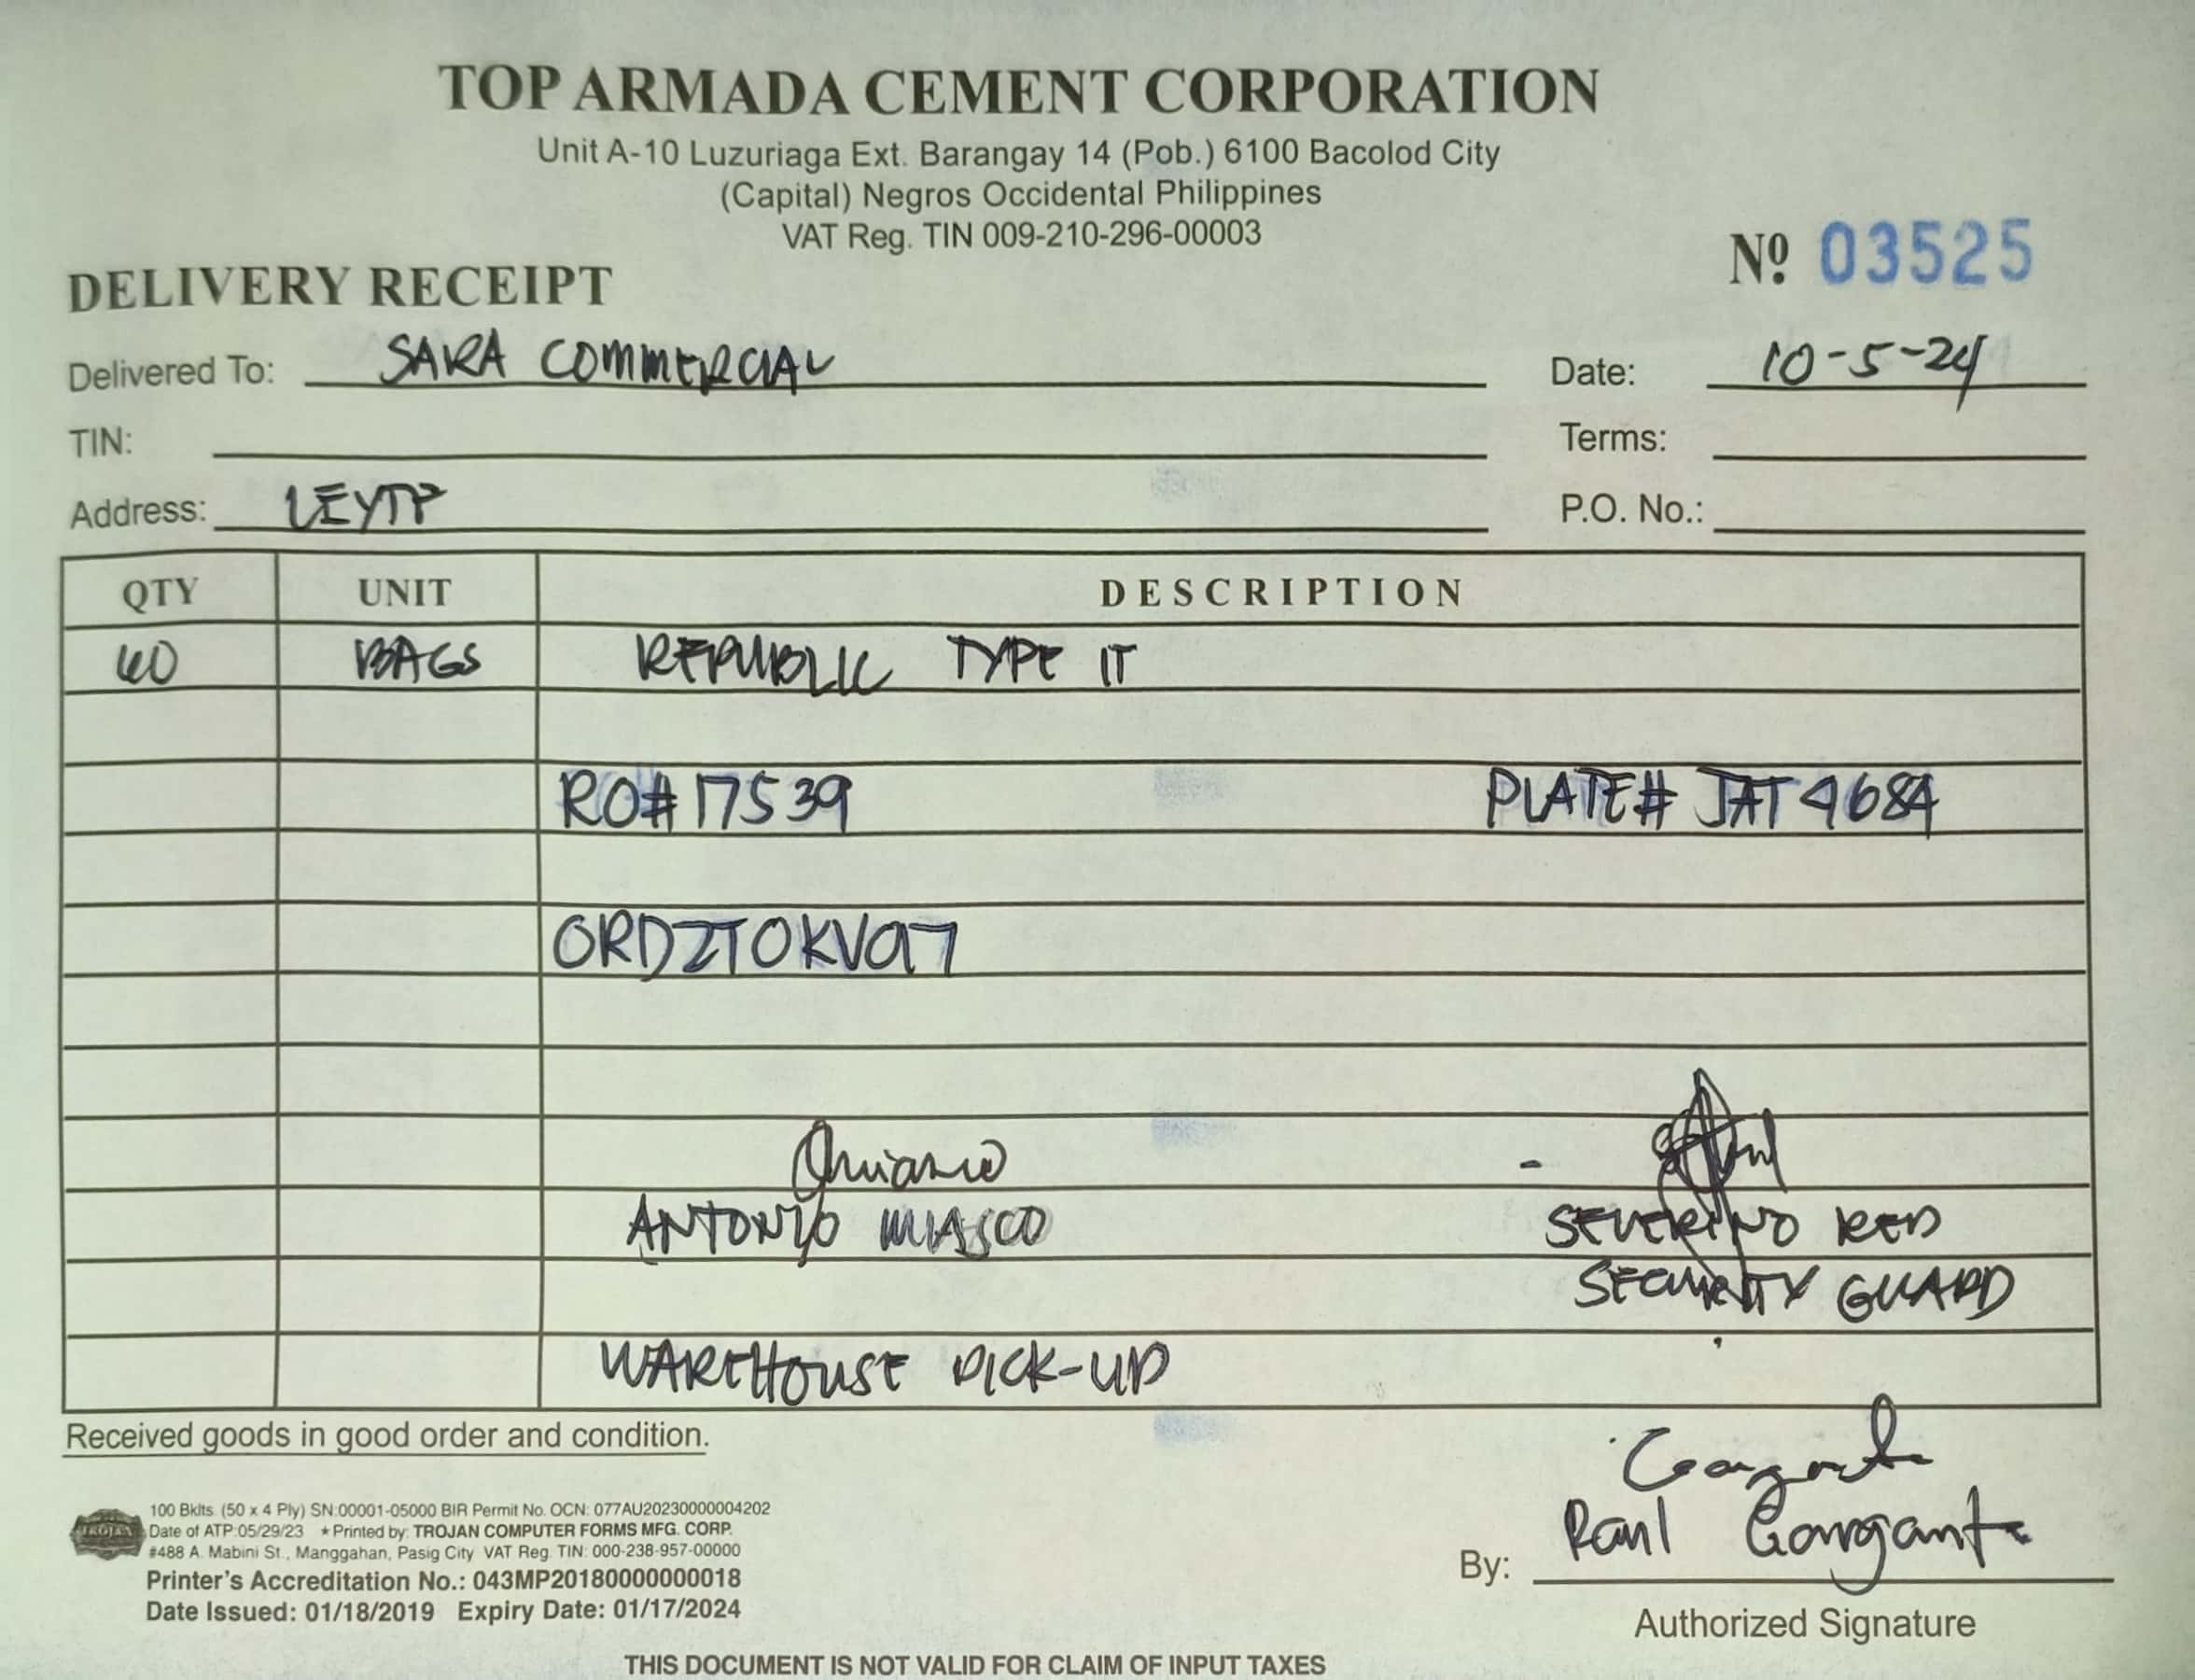 TOP ARMADA CEMENT CORPORATION
Unit A-10 Luzuriaga Ext. Barangay 14 (Pob.) 6100 Bacolod City
(Capital) Negros Occidental Philippines
VAT Reg. TIN 009-210-296-00003
Nº 03525
DELIVERY RECEIPT
Delivered To: SARA COMMERCIAL Date: 10-5-24
TIN: Terms:
Address: LEYTE P.O. No.:
QTY UNIT DESCRIPTION
40 BAGS REPUBLIC TYPE 1T
RO# 17539 PLATE# JAT 4684
ORDZTOKVA7
ANTONIO MIASCO SEVERINO RED
SECURITY GUARD
WAREHOUSE PICK-UP
Received goods in good order and condition.
TROJAN
100 Bklts. (50 x 4 Ply) SN:00001-05000 BIR Permit No. OCN: 077AU20230000004202
Date of ATP:05/29/23 ★Printed by: TROJAN COMPUTER FORMS MFG. CORP.
#488 A. Mabini St., Manggahan, Pasig City VAT Reg. TIN: 000-238-957-00000
Printer's Accreditation No.: 043MP20180000000018
Date Issued: 01/18/2019 Expiry Date: 01/17/2024
By: Raul Gargante
Authorized Signature
THIS DOCUMENT IS NOT VALID FOR CLAIM OF INPUT TAXES